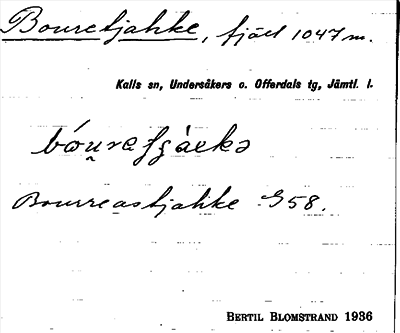 Bouretjahke, fjäll 1047 m.
Kalls sn, Undersåkers o. Offerdals tg, Jämtl. l.
Bourreastjahke G58.
BERTIL BLOMSTRAND 1936